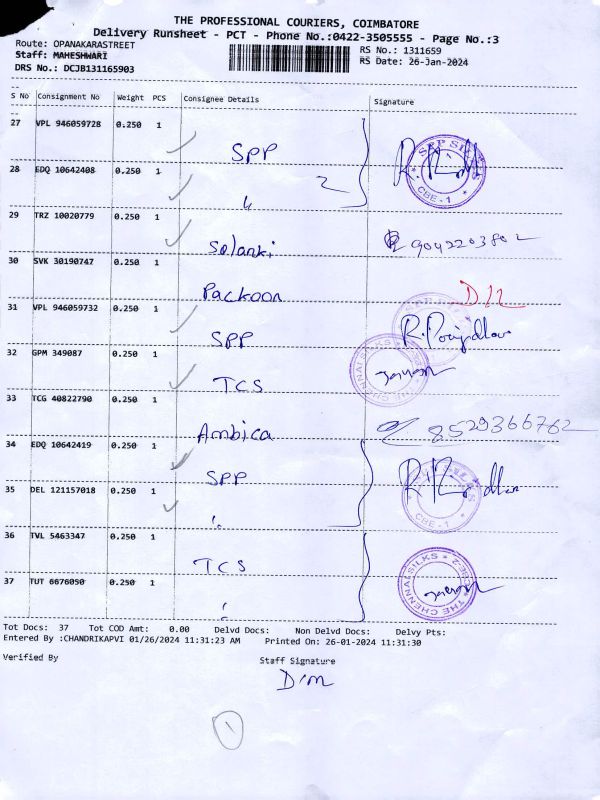 THE PROFESSIONAL COURIERS, COIMBATORE
Delivery Runsheet - PCT - Phone No.:0422-3505555 - Page No.:3
Route: OPANAKARASTREET
RS No.: 1311659
Staff: MAHESHWARI
RS Date: 26-Jan-2024
DRS No.: DCJB131165903
S No Consignment No Weight PCS Consignee Details Signature
27 VPL 946059728 0.250 1 SPP
SPP SILKS CBE-1
28 EDQ 10642408 0.250 1 "
29 TRZ 10020779 0.250 1 Solanki
30 SVK 30190747 0.250 1 Packoon D.12
31 VPL 946059732 0.250 1 SPP
32 GPM 349087 0.250 1 TCS
33 TCG 40822790 0.250 1 Ambica 8529366762
34 EDQ 10642419 0.250 1 SPP
35 DEL 121157018 0.250 1 "
36 TVL 5463347 0.250 1 TCS
THE CHENNAI SILKS CBE-2
37 TUT 6676050 0.250 1 "
Tot Docs: 37 Tot COD Amt: 0.00 Delvd Docs: Non Delvd Docs: Delvy Pts:
Entered By :CHANDRIKAPVI 01/26/2024 11:31:23 AM Printed On: 26-01-2024 11:31:30
Verified By Staff Signature
1